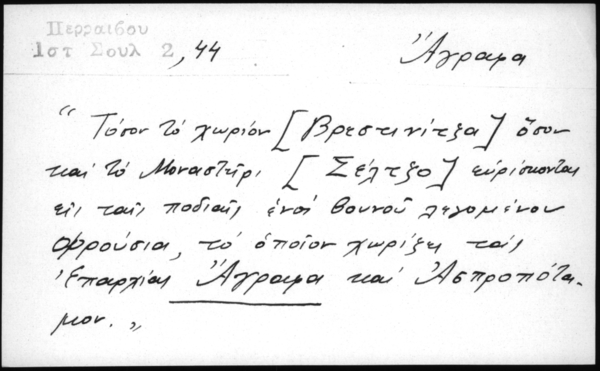 Περραιβου
Ιστ Σουλ 2, 44
Ἄγραφα
" Τόσον τὸ χωρίον [Βρεστενίτζα] ὅσον
καὶ τὸ Μοναστῆρι [Σέλτζο] εὑρίσκονται
εἰς ταῖς ποδιαῖς ἑνὸς βουνοῦ λεγομένου
Φρούσια, τὸ ὁποῖον χωρίζει ταῖς
Ἐπαρχίας Ἄγραφα καὶ Ἀσπροπότα-
μον. "